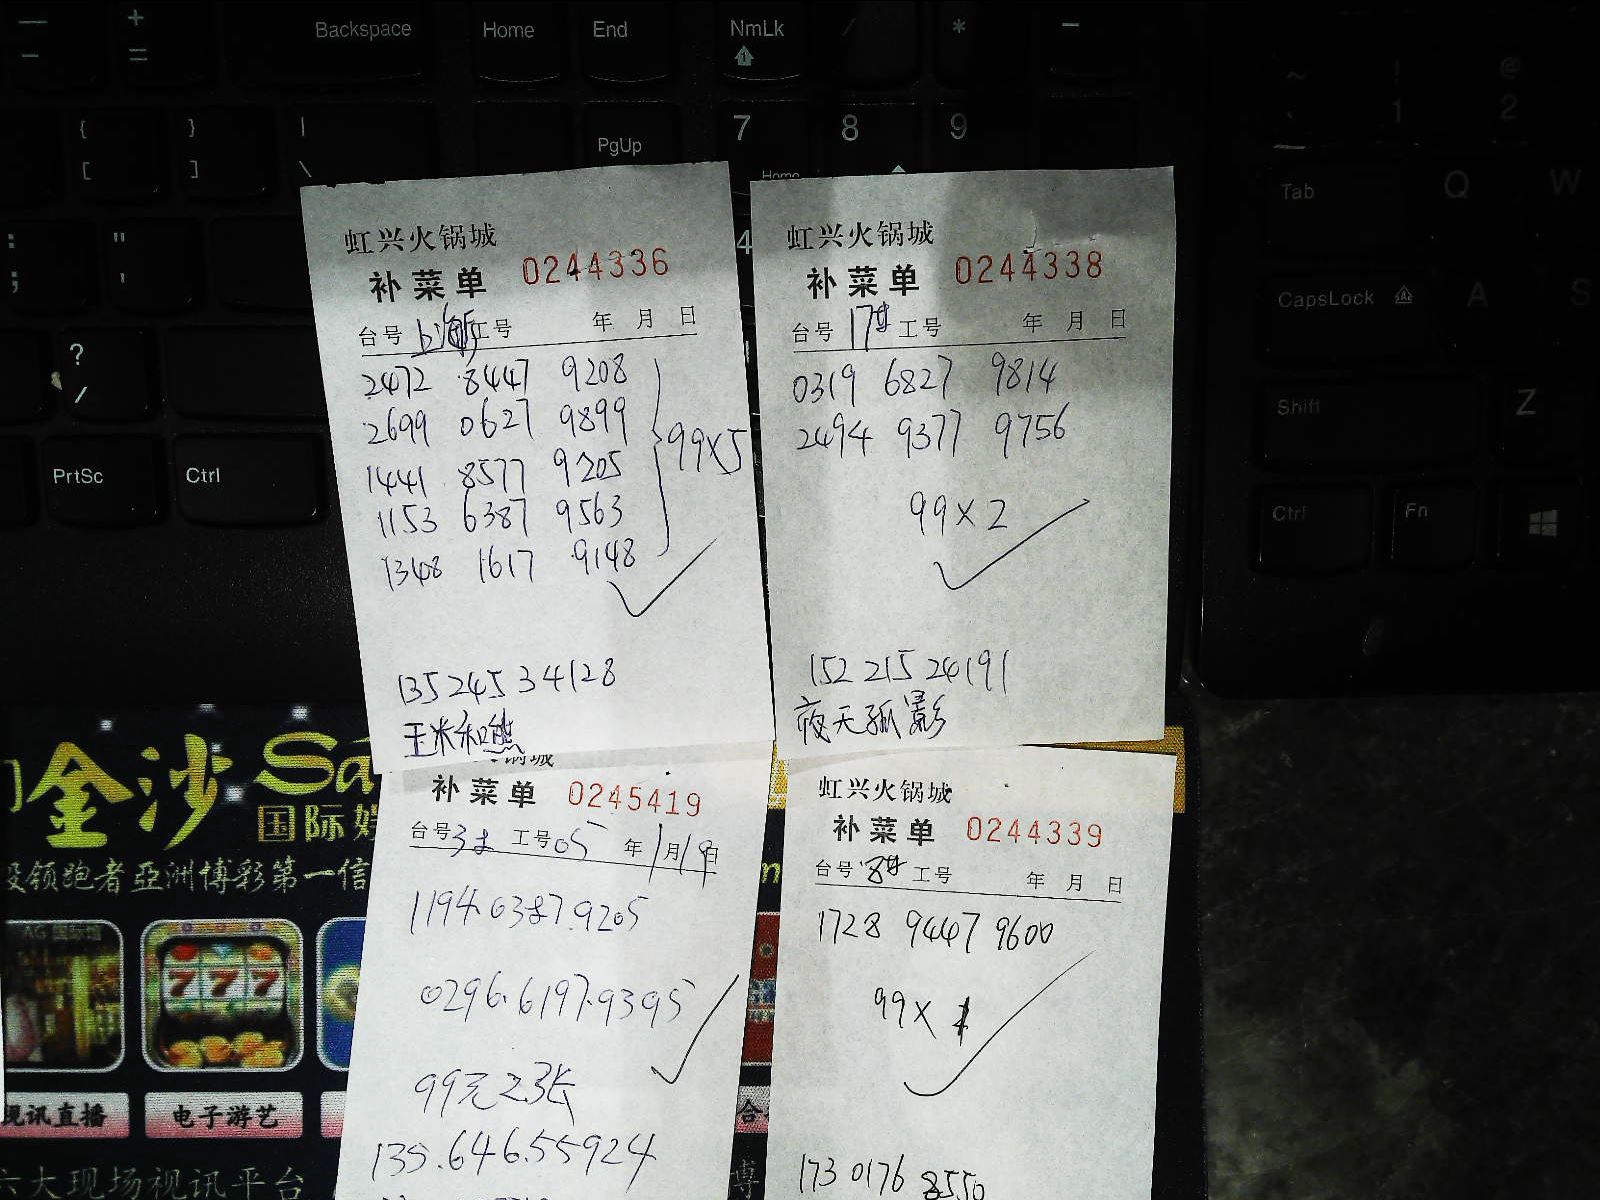 Backspace Home End NmLk
PgUp 7 8 9
Home
PrtSc Ctrl
Tab Q W
CapsLock A S
Shift Z
Ctrl Fn
虹兴火锅城
补菜单 0244336
台号 上海 工号 年 月 日
2472 8447 9208
2699 0627 9899
1441 8577 9205
1153 6387 9563
1348 1617 9148
99×5
135 245 34128
玉米和熊
虹兴火锅城
补菜单 0244338
台号 17# 工号 年 月 日
0319 6827 9814
2494 9377 9756
99×2
152 215 24191
夜天孤影
补菜单 0245419
台号 3# 工号 05 年 1月19日
1194.0387.9205
0296.6197.9395
99元2张
139.646.55924
虹兴火锅城
补菜单 0244339
台号 8# 工号 年 月 日
1728 9447 9600
99×1
173 0176 8550
金沙 Sa
国际娱
领跑者亞洲博彩第一信
777
视讯直播 电子游艺
六大现场视讯平台